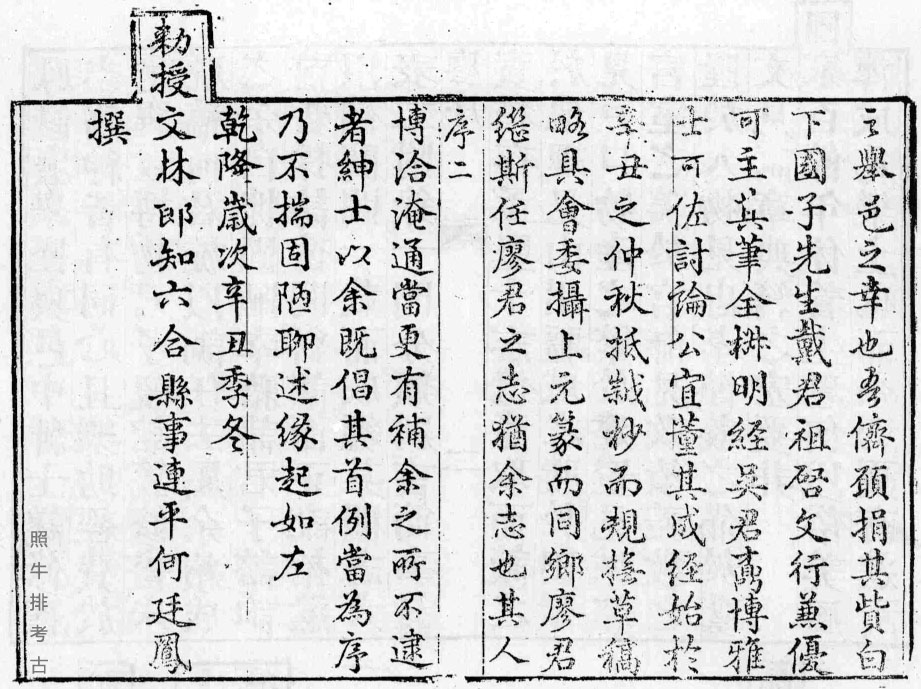 之舉邑之幸也吾儕願捐其貲白
下國子先生戴君祖啓文行兼優
可主其筆全椒明經吳君博雅
士可佐討論公宜董其成經始於
辛丑之仲秋抵杪而規撫草稿
略具會委攝上元篆而同鄉廖君
繼斯任廖君之志猶余志也其人
序二
博洽淹通當更有補余之所不逮
者紳士以余既倡其首例當為序
乃不揣固陋聊述緣起如左
乾隆歲次辛丑季冬
勅授文林郎知六合縣事連平何廷鳳
撰
照牛排考古